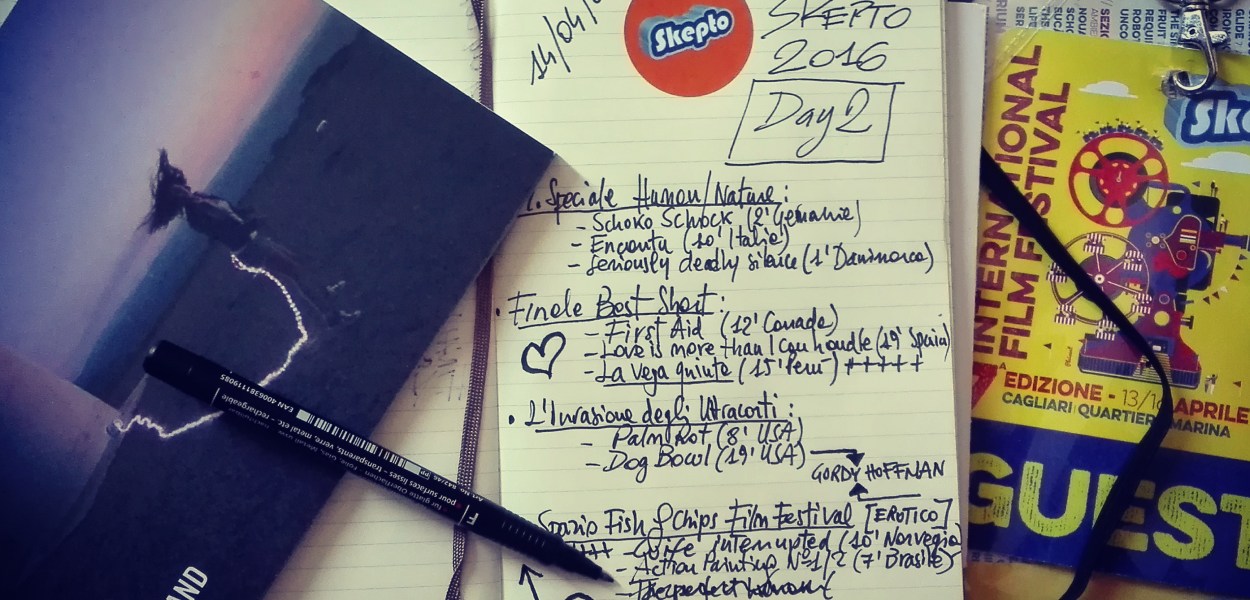 14/04/
Skepto
SKEPTO
2016
Day 2
Speciale Humor/Nature:
- Schoko Schock (2' Germania)
- (10' Italia)
- Seriously deadly silence (1' Danimarca)
• Finale Best Short:
- First Aid (12' Canada)
- Love is more than I can handle (19' Spain)
- La Veja quinte (15' Perù) +++++
• L'Invasione degli Ultracorti:
- Palm Rot (8' USA)
- Dog Bowl (19' USA)
GORDY HOFFMAN
Spazio Fish & Chips Film Festival [EROTICO]
interrupted (10' Norvegia
- Action Painting Nº 1/2 (7' Brasile)
EAN 4006381119085
pour surfaces lisses - transparents, verre, metal etc. - rechargeable
für glatte Oberflächen
F
AND
INTERNATIONAL
FILM FESTIVAL
Sk
EDIZIONE - 13/1 APRILE
CAGLIARI QUARTIER MARINA
GUEST